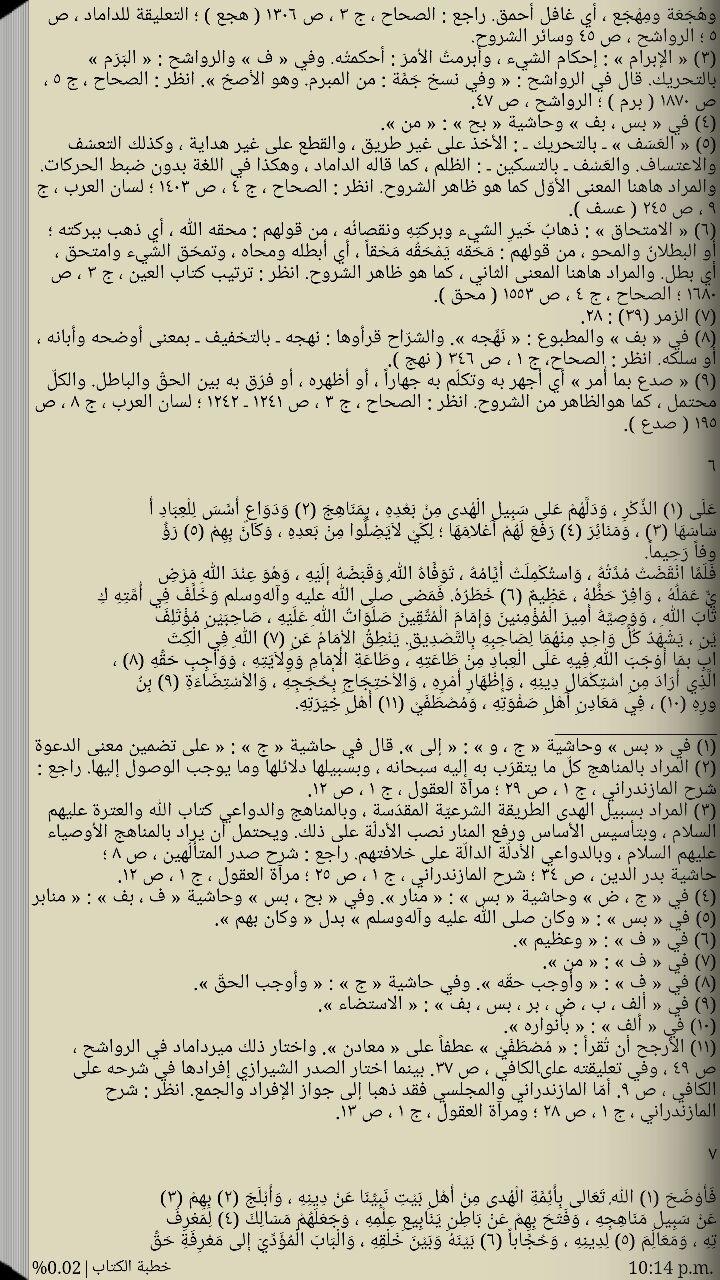 وهُجَعَة ومِهْجَع ، أي غافل أحمق. راجع : الصحاح ، ج ٣ ، ص ١٣٠٦ ( هجع ) ؛ التعليقة للداماد ، ص
٥ ؛ الرواشح ، ص ٤٥ وسائر الشروح.
(٣) « الإبرام » : إحكام الشيء ، وأبرمتُ الأمرَ : أحكمتُه. وفي « ف » والرواشح : « البَرَم »
بالتحريك. قال في الرواشح : « وفي نسخ جَمَّة : من المبرم. وهو الأصحّ ». انظر : الصحاح ، ج ٥ ،
ص ١٨٧٠ ( برم ) ؛ الرواشح ، ص ٤٧.
(٤) في « بس ، بف » وحاشية « بح » : « من ».
(٥) « العَسَف » ـ بالتحريك ـ : الأخذ على غير طريق ، والقطع على غير هداية ، وكذلك التعسّف
والاعتساف. والعَسْف ـ بالتسكين ـ : الظلم ، كما قاله الداماد ، وهكذا في اللغة بدون ضبط الحركات.
والمراد هاهنا المعنى الأوّل كما هو ظاهر الشروح. انظر : الصحاح ، ج ٤ ، ص ١٤٠٣ ؛ لسان العرب ، ج
٩ ، ص ٢٤٥ ( عسف ).
(٦) « الامتحاق » : ذهابُ خَيرِ الشيء وبركتِهِ ونقصانُه ، من قولهم : محقه الله ، أي ذهب ببركته ؛
أو البطلانُ والمحو ، من قولهم : مَحَقه يَمْحَقُه مَحْقاً ، أي أبطله ومحاه ، وتمحّق الشيء وامتحق ،
أي بطل. والمراد هاهنا المعنى الثاني ، كما هو ظاهر الشروح. انظر : ترتيب كتاب العين ، ج ٣ ، ص
١٦٨٠ ؛ الصحاح ، ج ٤ ، ص ١٥٥٣ ( محق ).
(٧) الزمر (٣٩) : ٢٨.
(٨) في « بف » والمطبوع : « نَهَّجه ». والشرّاح قرأوها : نهجه ـ بالتخفيف ـ بمعنى أوضحه وأبانه ،
أو سلكه. انظر : الصحاح، ج ١ ، ص ٣٤٦ ( نهج ).
(٩) « صدع بما أمر » أي أجهر به وتكلّم به جهاراً ، أو أظهره ، أو فرّق به بين الحقّ والباطل. والكلّ
محتمل ، كما هوالظاهر من الشروح. انظر : الصحاح ، ج ٣ ، ص ١٢٤١ ـ ١٢٤٢ ؛ لسان العرب ، ج ٨ ، ص
١٩٥ ( صدع ).
٦
عَلَى (١) الذِّكْرِ ، وَدَلَّهُمْ عَلى سَبِيلِ الْهُدى مِنْ بَعْدِهِ ، بِمَنَاهِجَ (٢) وَدَوَاعٍ أَسَّسَ لِلْعِبَادِ أَ
سَاسَهَا (٣) ، وَمَنَائِرَ (٤) رَفَعَ لَهُمْ أَعْلَامَهَا ؛ لِكَيْ لَايَضِلُّوا مِنْ بَعدِهِ ، وَكَانَ بِهِمْ (٥) رَؤُ
وفاً رَحِيماً.
فَلَمَّا انْقَضَتْ مُدَّتُهُ ، وَاسْتُكْمِلَتْ أَيَّامُهُ ، تَوَفَّاهُ اللهُ وَقَبَضَهُ إلَيْهِ ، وَهُوَ عِنْدَ اللهِ مَرْضِ
يٌّ عَمَلُهُ ، وَافِرٌ حَظُّهُ ، عَظِيمٌ (٦) خَطَرُهُ. فَمَضى صلى الله عليه وآله‌وسلم وَخَلَّفَ فِي أُمَّتِهِ كِ
تَابَ اللهِ ، وَوَصِيَّهُ أَمِيرَ الْمُؤْمِنِينَ وَإمَامَ الْمُتَّقِينَ صَلَوَاتُ اللهِ عَلَيْهِ ، صَاحِبَيْنِ مُؤْتَلِفَيْ
يْنِ ، يَشْهَدُ كُلُّ وَاحِدٍ مِنْهُمَا لِصَاحِبِهِ بِالتَّصْدِيقِ ِ يَنْطِقُ الْإمَامُ عَنِ (٧) اللهِ فِي الْكِتَ
ابِ بِمَا أَوْجَبَ اللهُ فِيهِ عَلَى الْعِبَادِ مِنْ طَاعَتِهِ ، وطَاعَةِ الْإمَامِ وَوِلَايَتِهِ ، وَوَاجِبِ حَقِّهِ (٨) ،
الَّذِي أَرَادَ مِنِ اسْتِكْمَالِ دِينِهِ ، وَإظْهَارِ أَمْرِهِ ، وَالاحْتِجَاجِ بِحُجَجِهِ ، وَالاسْتِضَاءَةِ (٩) بِنُ
ورِهِ (١٠) ، فِي مَعَادِنِ أَهْلِ صَفْوَتِهِ ، وَمُصْطَفَيْ (١١) أَهْلِ خِيَرَتِهِ.
(١) في « بس » وحاشية « ج ، و » : « إلى ». قال في حاشية « ج » : « على تضمين معنى الدعوة
(٢) المراد بالمناهج كلّ ما يتقرّب به إليه سبحانه ، وبسبيلها دلائلها وما يوجب الوصول إليها. راجع :
شرح المازندراني ، ج ١ ، ص ٢٩ ؛ مرآة العقول ، ج ١ ، ص ١٢.
(٣) المراد بسبيل الهدى الطريقة الشرعيّة المقدّسة ، وبالمناهج والدواعي كتاب الله والعترة عليهم
السلام ، وبتأسيس الأساس ورفع المنار نصب الأدلّة على ذلك. ويحتمل أن يراد بالمناهج الأوصياء
عليهم السلام ، وبالدواعي الأدلّة الدالّة على خلافتهم. راجع : شرح صدر المتألّهين ، ص ٨ ؛
حاشية بدر الدين ، ص ٣٤ ؛ شرح المازندراني ، ج ١ ، ص ٢٥ ؛ مرآة العقول ، ج ١ ، ص ١٢.
(٤) في « ج ، ض » وحاشية « بس » : « منار ». وفي « بح ، بس » وحاشية « ف ، بف » : « منابر
(٥) في « بس » : « وكان صلى الله عليه وآله‌وسلم » بدل « وكان بهم ».
(٦) في « ف » : « وعظيم ».
(٧) في « ف » : « من ».
(٨) في « ف » : « وأوجب حقّه ». وفي حاشية « ج » : « وأوجب الحقّ ».
(٩) في « ألف ، ب ، ض ، بر ، بس ، بف » : « الاستضاء ».
(١٠) في « ألف » : « بأنواره ».
(١١) الأرجح أن تُقرأ : « مُصْطَفَيْ » عطفاً على « معادن ». واختار ذلك ميرداماد في الرواشح ،
ص ٤٩ ، وفي تعليقته على‌الكافي ، ص ٣٧. بينما اختار الصدر الشيرازي إفرادها في شرحه على
الكافي ، ص ٩. أمّا المازندراني والمجلسي فقد ذهبا إلى جواز الإفراد والجمع. انظر : شرح
المازندراني ، ج ١ ، ص ٢٨ ؛ ومرآة العقول ، ج ١ ، ص ١٣.
٧
فَأَوْضَحَ (١) اللهُ تَعَالى بِأَئِمَّةِ الْهُدى مِنْ أَهْلِ بَيْتِ نَبِيِّنَا عَنْ دِينِهِ ، وَأَبْلَجَ (٢) بِهِمْ (٣)
عَنْ سَبِيلِ مَنَاهِجِهِ ، وَفَتَحَ بِهِمْ عَنْ بَاطِنِ يَنَابِيعِ عِلْمِهِ ، وَجَعَلَهُمْ مَسَالِكَ (٤) لِمَعْرِفَ
تِهِ ، وَمَعَالِمَ (٥) لِدِينِهِ ، وَحُجَّاباً (٦) بَيْنَهُ وَبَيْنَ خَلْقِهِ ، وَالْبَابَ الْمُؤَدِّيَ إلى مَعْرِفَةِ حَقِّ
10:14 p.m. خطبة الكتاب | 0.02%